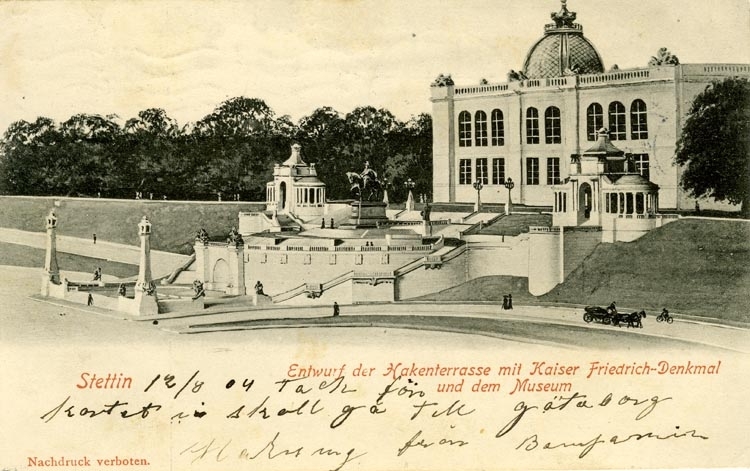 Stettin 12/8 04 tack för
Entwurf der Hakenterrasse mit Kaiser Friedrich-Denkmal
und dem Museum
kortet i skoll gå till götaborg
från
Nachdruck verboten.